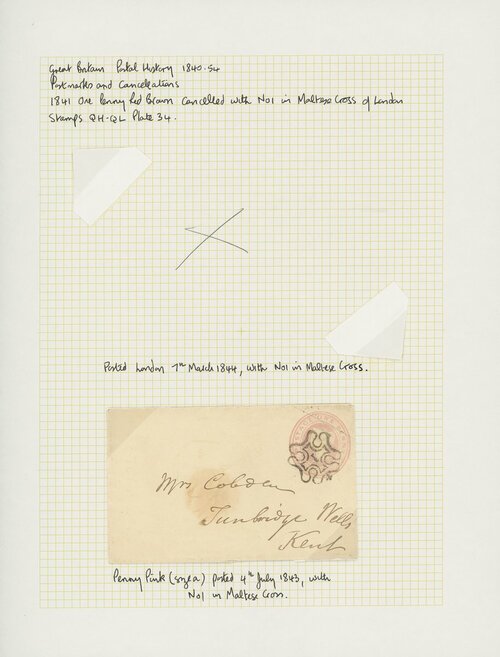 Great Britain Postal History 1840-54
Postmarks and Cancellations
1841 One Penny Red Brown Cancelled with No1 in Maltese Cross of London
Stamps QH-QL Plate 34.
Posted London 7th March 1844, with No1 in Maltese Cross.
Mrs Cobden
Tunbridge Wells
Kent
Penny Pink (size a) posted 4th July 1843, with
No1 in Maltese Cross.